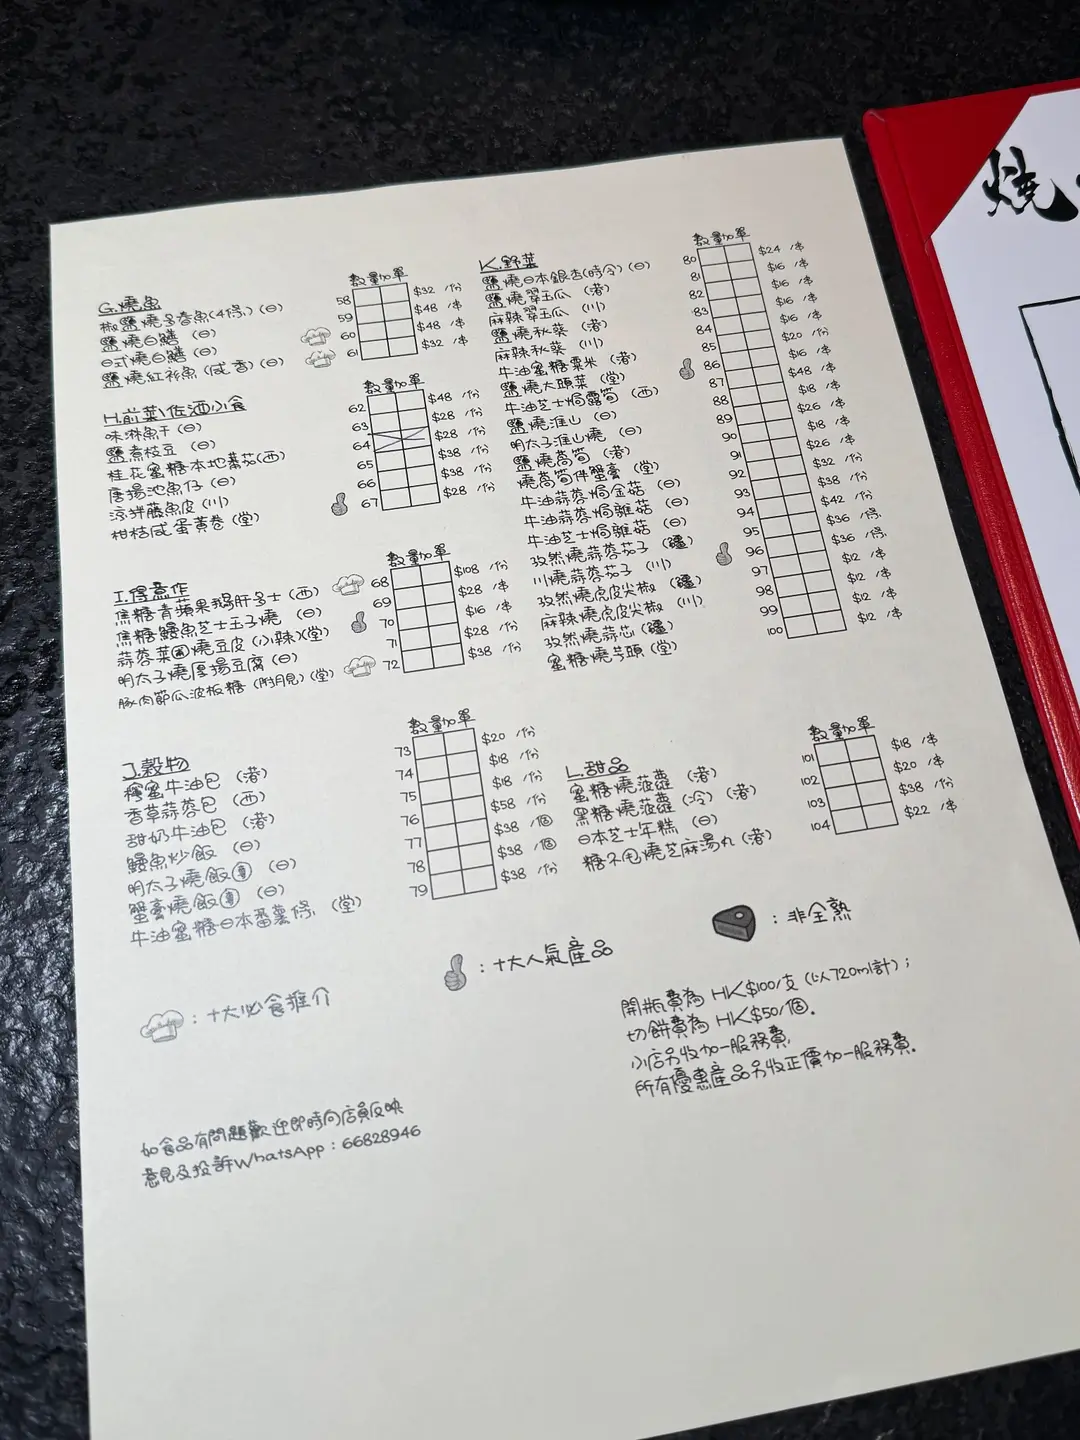 燒
G.燒魚
數量加單
椒鹽燒多春魚(4條)(日) 58 $32 /份
鹽燒白鱔 (日) 59 $48 /串
日式燒白鱔 (日) 60 $48 /串
鹽燒紅衫魚 (咸香) (日) 61 $32 /串
H.前菜\佐酒小食
數量加單
味淋魚干 (日) 62 $48 /份
鹽煮枝豆 (日) 63 $28 /份
桂花蜜糖本地蕃茄(西) 64 $28 /份
唐揚池魚仔 (日) 65 $38 /份
涼拌藤魚皮 (川) 66 $38 /份
柑桔咸蛋黃卷 (堂) 67 $28 /份
I.得意作
數量加單
焦糖青蘋果鵝肝多士 (西) 68 $108 /份
焦糖鰻魚芝士玉子燒 (日) 69 $28 /串
蒜蓉菜圃燒豆皮 (小辣)(堂) 70 $16 /串
明太子燒厚揚豆腐 (日) 71 $28 /份
豚肉節瓜波板糖 (附月見) (堂) 72 $38 /份
J.穀物
數量加單
檸蜜牛油包 (港) 73 $20 /份
香草蒜蓉包 (西) 74 $18 /份
甜奶牛油包 (港) 75 $18 /份
鰻魚炒飯 (日) 76 $58 /份
明太子燒飯 (日) 77 $38 /個
蟹膏燒飯 (日) 78 $38 /個
牛油蜜糖日本番薯條 (堂) 79 $38 /份
K.野菜
鹽燒日本銀杏(時令)(日)
鹽燒翠玉瓜 (港)
麻辣翠玉瓜 (川)
鹽燒秋葵 (港)
麻辣秋葵 (川)
牛油蜜糖粟米 (港)
鹽燒大頭菜 (堂)
牛油芝士焗露筍 (西)
鹽燒淮山 (日)
明太子淮山燒 (日)
鹽燒萵筍 (港)
燒萵筍伴蟹膏 (堂)
牛油蒜蓉焗金菇 (日)
牛油蒜蓉焗雜菇 (日)
牛油芝士焗雜菇 (日)
孜然燒蒜蓉茄子 (疆)
川燒蒜蓉茄子 (川)
孜然燒虎皮尖椒 (疆)
麻辣燒虎皮尖椒 (川)
孜然燒蒜芯 (疆)
蜜糖燒芋頭 (堂)
數量加單
80
81
82
83
84
85
86
87
88
89
90
91
92
93
94
95
96
97
98
99
100
$24 /串
$16 /串
$16 /串
$16 /串
$20 /份
$16 /串
$48 /串
$18 /串
$26 /串
$18 /串
$26 /串
$32 /份
$38 /份
$42 /份
$36 /條
$36 /條
$12 /串
$12 /串
$12 /串
$12 /串
L.甜品
數量加單
蜜糖燒菠蘿 (港) 101 $18 /串
黑糖燒菠蘿 (冷) (港) 102 $20 /串
日本芝士年糕 (日) 103 $38 /份
糖不甩燒芝麻湯丸 (港) 104 $22 /串
:十大必食推介
:十大人氣產品
:非全熟
開瓶費為 HK$100/支 (以720ml計);
切餅費為 HK$50/個.
小店另收加一服務費,
所有優惠產品另收正價加一服務費.
如食品有問題歡迎即時向店員反映
意見及投訴WhatsApp : 66828946